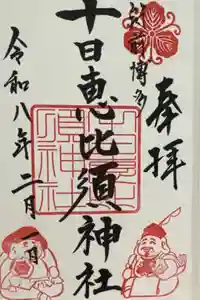 奉拝
筑前博多
十日恵比須神社
令和八年二月一日